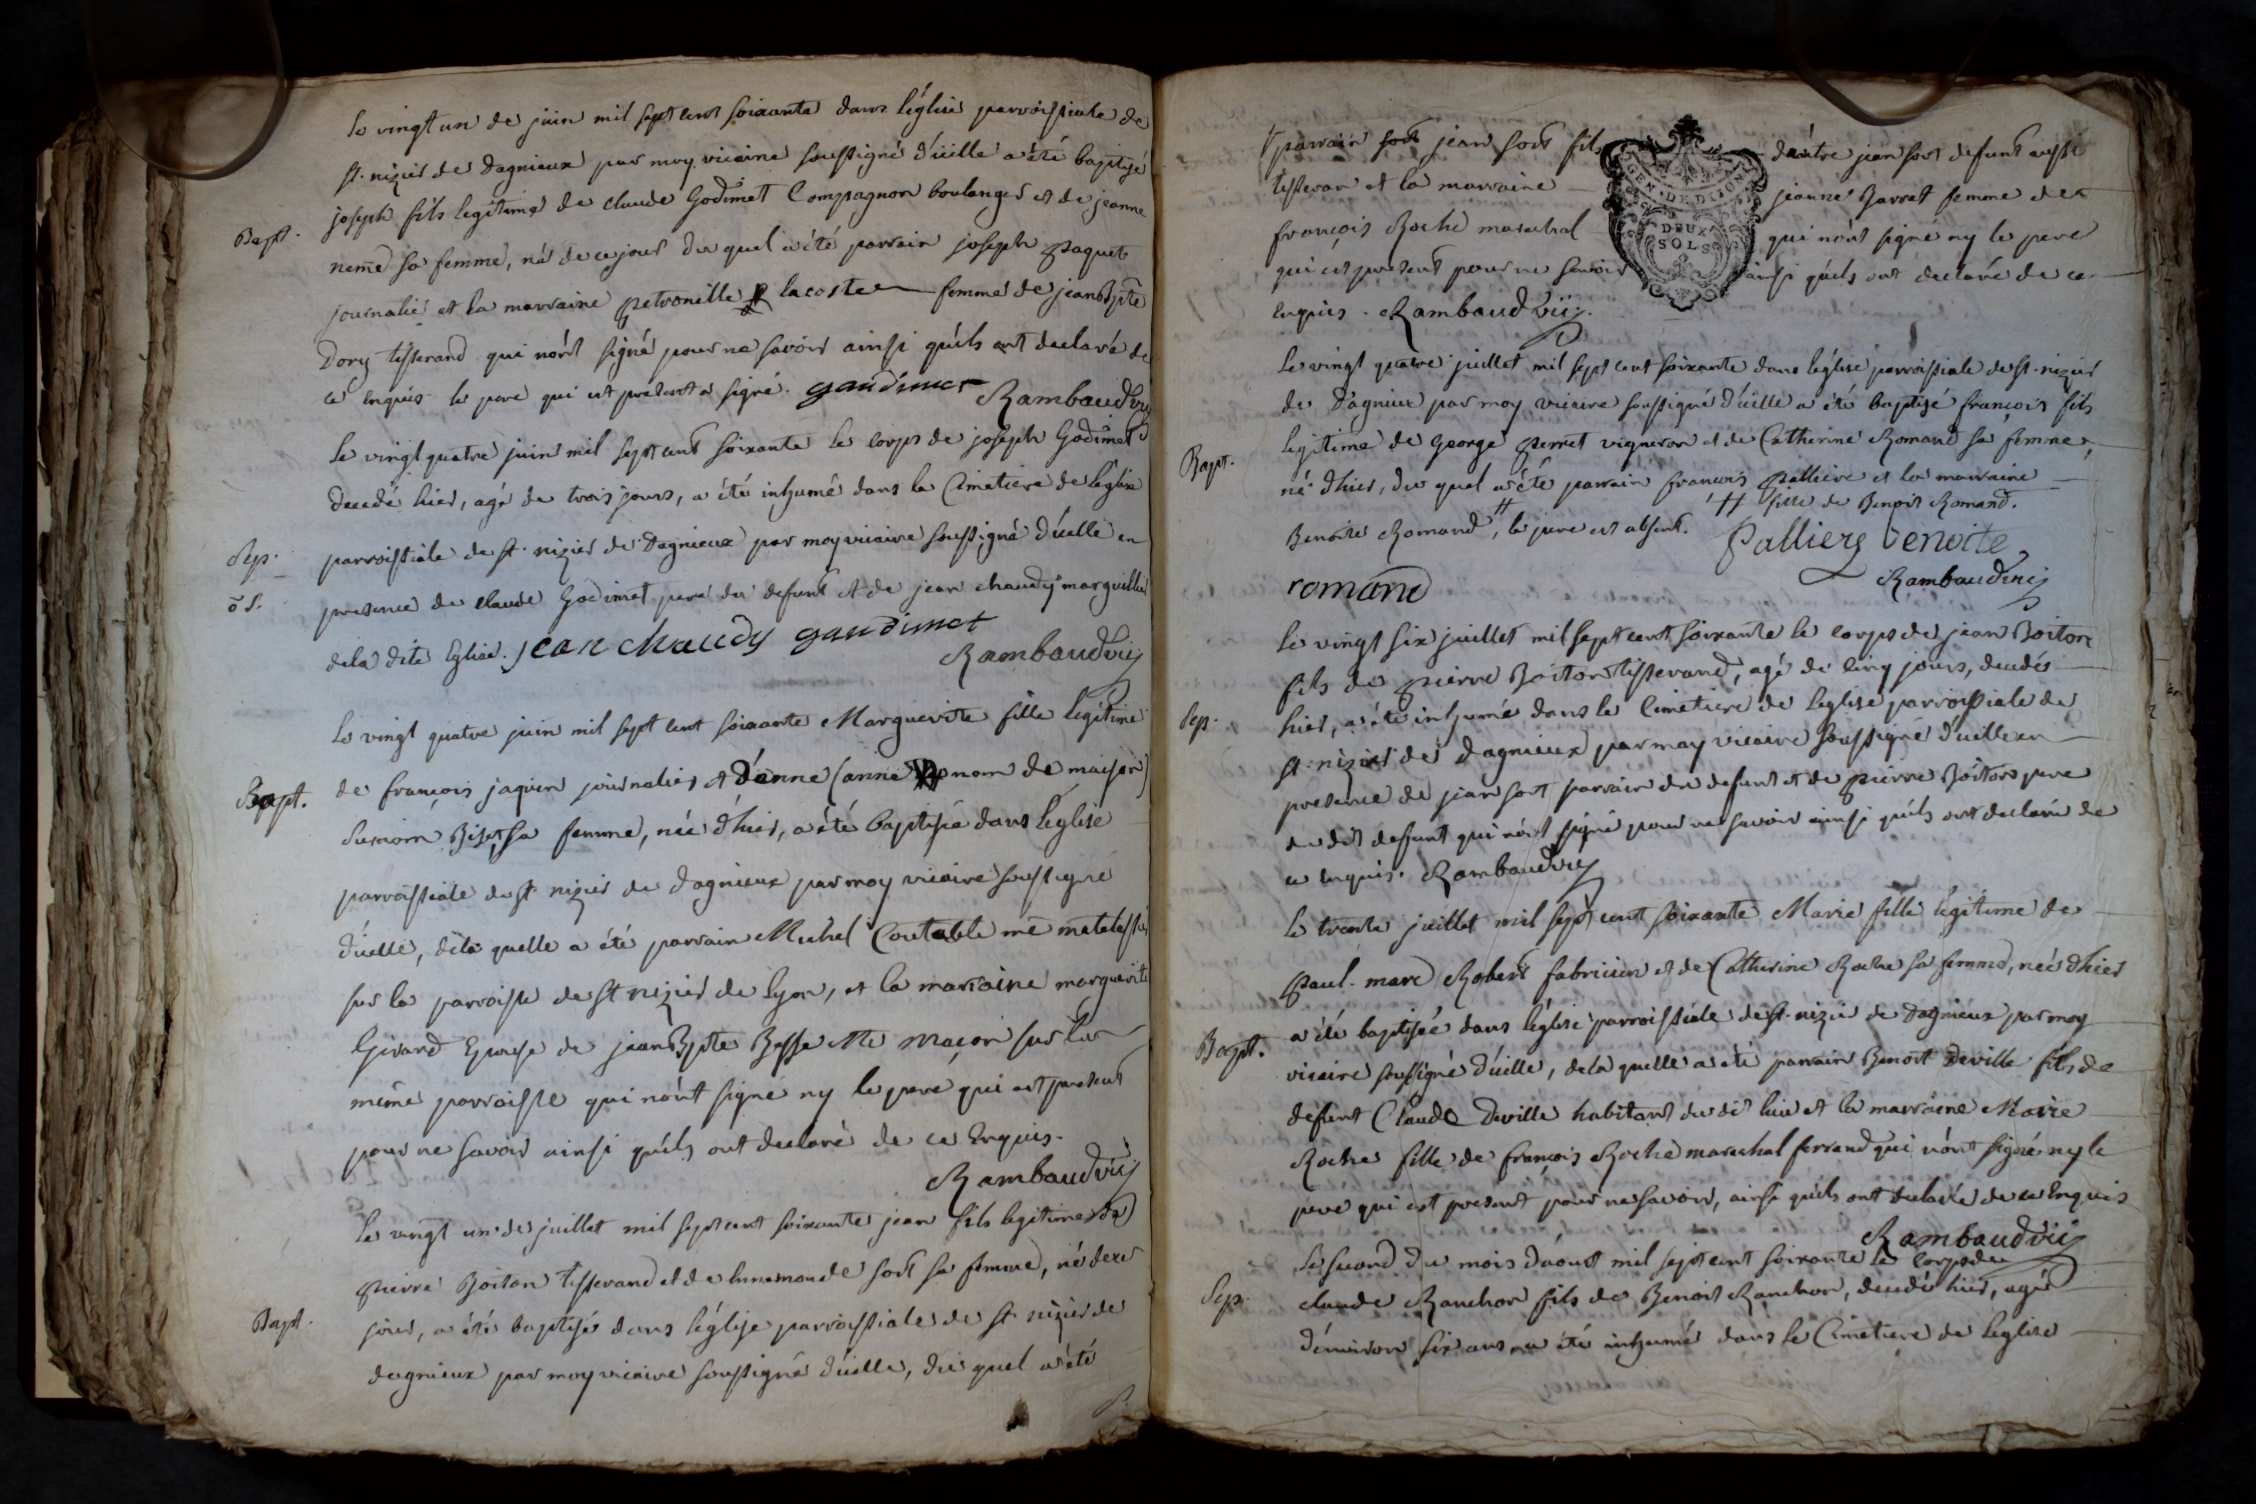 le vingt un de juin mil sept cent soixante dans l'église parroissiale de
st. nizier de Dagnieux par moy vicaire soussigné d'icelle a été baptisé
joseph fils legitime de claude Godimet Compagnon boulanger et de jeanne
Bapt.
neme sa femme, né de ce jour du quel a été parrain joseph paquet
journalié et la marraine petronille lacoste femme de jean Bpte
Dory tisserand qui n'ont signé pour ne savoir ainsi qu'ils ont declaré de
ce enquis le pere qui est présent a signé. gaudimet Rambaud vic
le vingt quatre juin mil sept cent soixante le corps de joseph Godimet
decedé hier, agé de trois jours, a été inhumé dans le Cimetiere de l'église
Sep.
parroissiale de st. nizier de Dagnieux par moy vicaire soussigné d'icelle en
õ S.
presence de claude Godimet pere du defunt et de jean chaudy marguillier
de la dite Eglise. jean chaudy gaudimet
Rambaud vic
le vingt quatre juin mil sept cent soixante Marguerite fille legitime
Bapt.
de françois jaquin journalier et d'anne (anne nom de maison)
surnom Bizet sa femme, née d'hier, a été baptisée dans l'église
parroissiale de st nizier de dagnieux par moy vicaire soussigné
d'icelle, de la quelle a été parrain Michel Coutable me matelassier
sur la parroisse de st nizier de Lyon, et la marraine marguerite
Girard Epouse de jean Bpte Basse Me maçon sur la
même parroisse qui n'ont signé ny le pere qui est present
pour ne savoir ainsi qu'ils ont declaré de ce Enquis.
Rambaud vic
le vingt un de juillet mil sept cent soixante jean fils legitime de
pierre Boiton tisserand et de Ennemonde sort sa femme, né de ce
Bapt.
jour, a été baptisé dans l'église parroissiale de st nizier de
dagnieux par moy vicaire soussigné d'icelle, du quel a été
parrain jean sort fils d'autre jean sort defunt aussi
tisseran et la marraine jeanne Barret femme de
françois Roche marechal qui n'ont signé ny le pere
qui est present pour ne savoir ainsi qu'ils ont declaré de ce
enquis. Rambaud vic.
GEN. DE DIJON
DEUX
SOLS
le vingt quatre juillet mil sept cent soixante dans l'église parroissiale de st. nizier
de Dagnieux par moy vicaire soussigné d'icelle a été baptisé françois fils
legitime de George perret vigneron et de Catherine Romand sa femme,
Bapt.
né d'hier, du quel a été parrain françois palliere et la marraine
# fille de Benoit Romand.
Benoite Romand #, le pere est absent. Palliere benoite
romand
Rambaud vic
le vingt six juillet mil sept cent soixante le corps de jean Boiton
fils de pierre Boiton tisserand, agé de cinq jours, decedé
Sep.
hier, a été inhumé dans le Cimetiere de l'eglise parroissiale de
st. nizier de Dagnieux par moy vicaire soussigné d'icelle en
presence de jean sort parrain du defunt et de pierre Boiton pere
du dit defunt qui n'ont signé pour ne savoir ainsi qu'ils ont declaré de
ce enquis. Rambaud vic
le trente juillet mil sept cent soixante Marie fille legitime de
paul-marc Robert fabricien et de Catherine Roche sa femme, née d'hier
a été baptisée dans l'église parroissiale de st. nizier de Dagnieux par moy
Bapt.
vicaire soussigné d'icelle, de la quelle a été parrain Benoit Deville fils de
defunt Claude Deville habitant du dit lieu et la marraine Marie
Roche fille de françois Roche marechal ferrand qui n'ont signé ny le
pere qui est present pour ne savoir, ainsi qu'ils ont declaré de ce Enquis
Rambaud vic
le second du mois d'août mil sept cent soixante le corps de
Sep.
claude Ranchon fils de Benoit Ranchon, decedé hier, agé
d'environ six ans, a été inhumé dans le Cimetiere de l'eglise